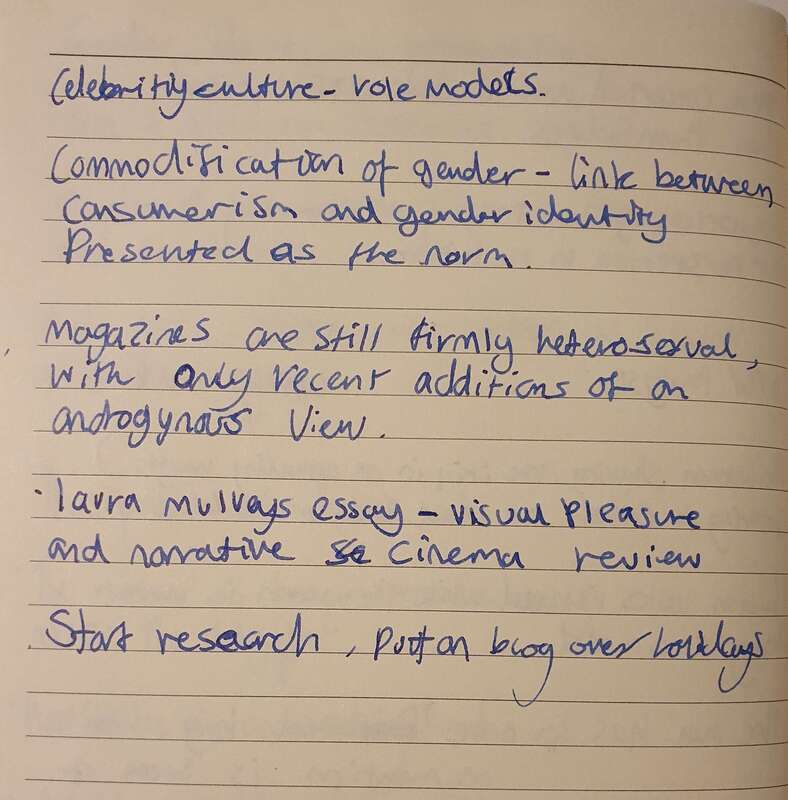 Celebritiy culture - role models.
Commodification of gender - link between
consumerism and gender identity
Presented as the norm.
Magazines are still firmly heterosexual,
with only recent additions of an
androgynous view.
· laura mulvays essay - visual pleasure
and narrative cinema review
. Start research, put on blog over holidays